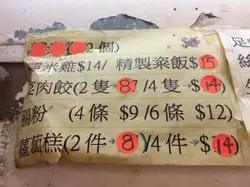 (2個) $
米雞$14/ 精製菜飯$15
肉餃(2隻→8)/4隻→$14)
腸粉 (4條 $9/6條 $12)
蘿蔔糕(2件→8)/4件→$14)
足